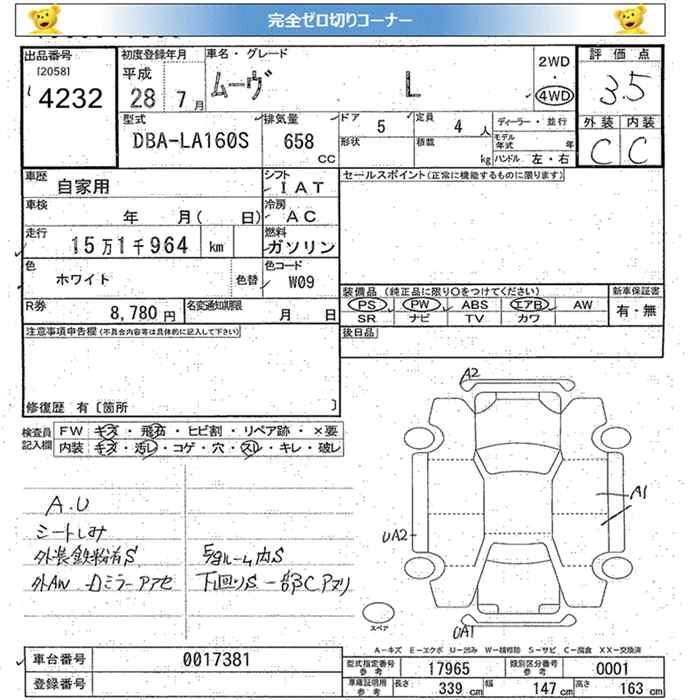 完全ゼロ切りコーナー
出品番号
[2058]
4232
初度登録年月
平成
28 7月
車名・グレード
ムーヴ L
2WD
・
4WD
評価点
3.5
外装 内装
C C
型式
DBA-LA160S
排気量
658
CC
ドア
5
定員
4 人
形状
積載
kg
ディーラー・並行
モデル年式 年
ハンドル 左・右
車歴
自家用
シフト
IAT
セールスポイント(正常に機能するものに限ります)
車検
年 月( 日)
冷房
AC
走行
15万1千964 km
燃料
ガソリン
色
ホワイト
色替
色コード
W09
R券
8,780円
名変通知期限
月 日
装備品 (純正品に限り○をつけてください)
PS PW ABS エアB AW
SR ナビ TV カワ
新車保証書
有・無
後日品
注意事項申告欄(不具合内容等は具体的に記入して下さい)
修復歴 有〔箇所 〕
検査員記入欄
FW キズ・飛石・ヒビ割・リペア跡・×要
内装 キズ・汚レ・コゲ・穴・スレ・キレ・破レ
A.U
シートしみ
外装鉄粉有S
5劣ルーム内S
下回りS 一部Cアリ
A2
A1
UA2
UA1
スペア
A-キズ E-エクボ U-凹み W-補修跡 S-サビ C-腐食 XX-交換済
車台番号
0017381
登録番号
型式指定番号 参考
17965
類別区分番号 参考
0001
車庫証明用 参考
長さ 339 cm
幅 147 cm
高さ 163 cm